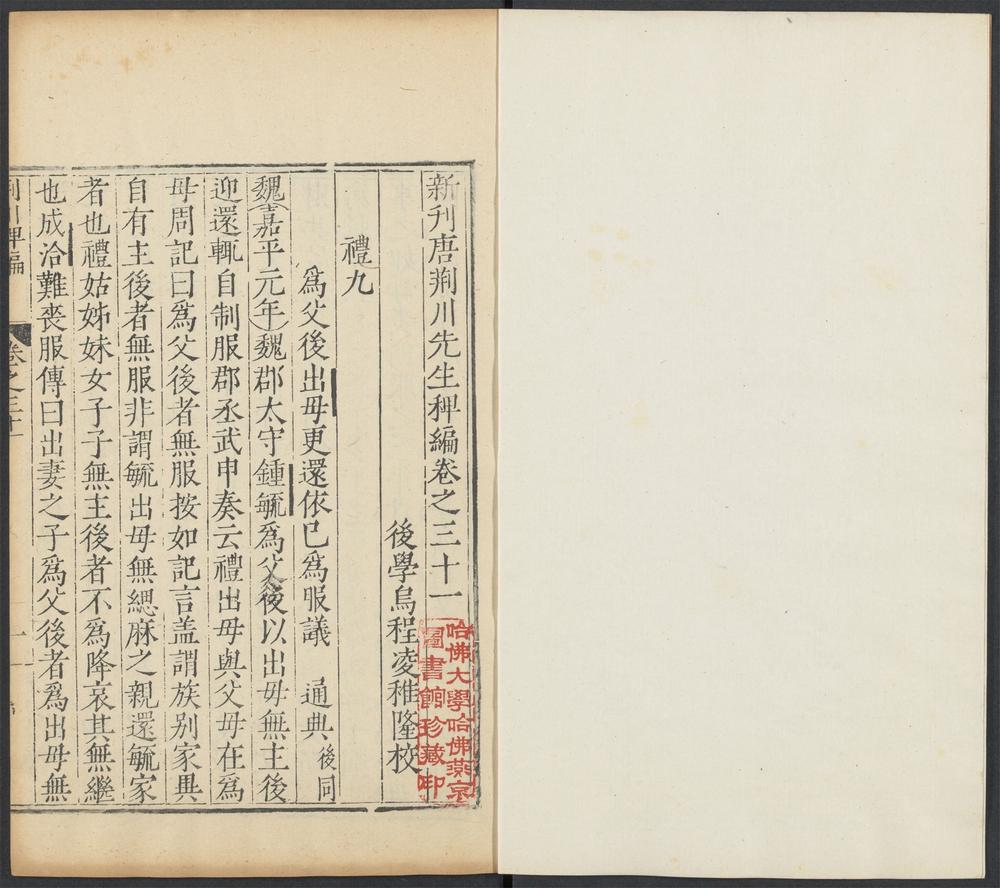 新刊唐荆川先生稗編卷之三十一
後學烏程凌稚隆校
哈佛大學哈佛燕京
圖書館珍藏印
禮九
爲父後出毋更還依已爲服議 通典後同
魏嘉平元年魏郡太守鍾毓爲父後以出毋無主後
迎還輒自制服郡丞武申奏云禮出毋與父毋在爲
毋周記曰爲父後者無服按如記言盖謂族别家異
自有主後者無服非謂毓出毋無緦麻之親還毓家
者也禮姑姊妹女子子無主後者不爲降哀其無繼
也成洽難喪服傳曰出妻之子爲父後者爲出毋無